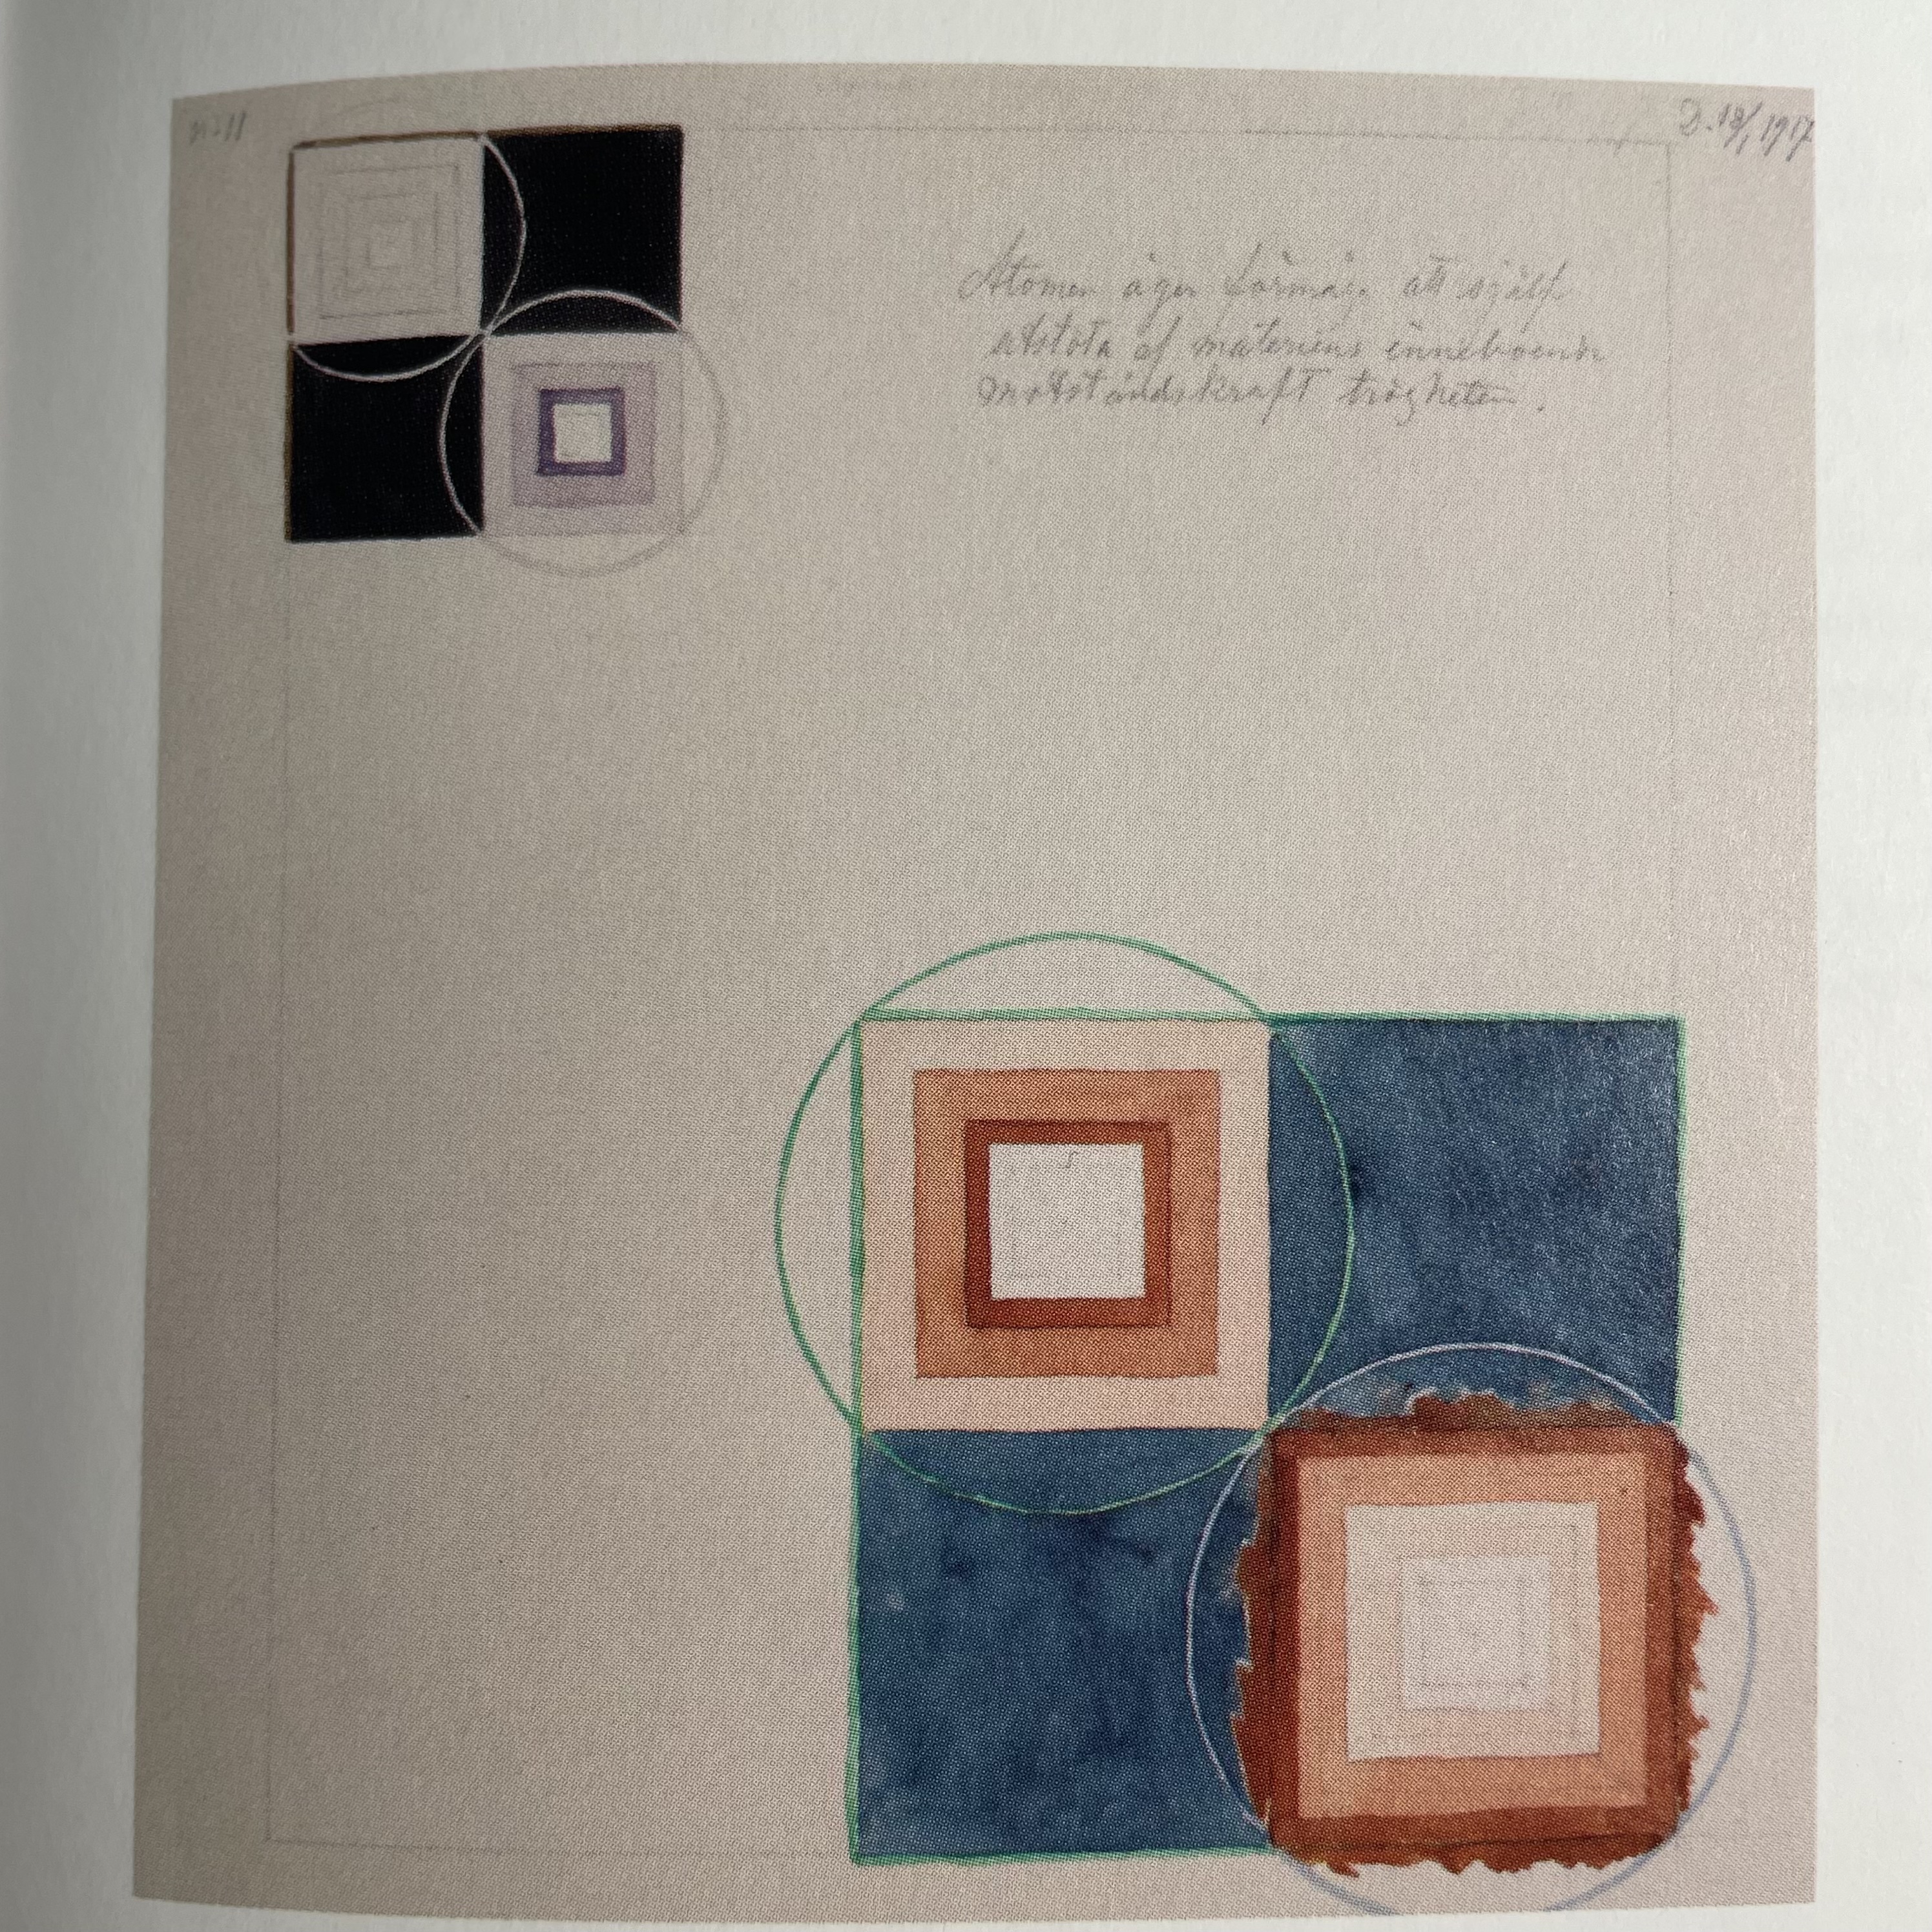 No 11
D. 13/1 1917
Atomen äger förmåga att sjelf
utstöta af materiens inneboende
motståndskraft trögheten.